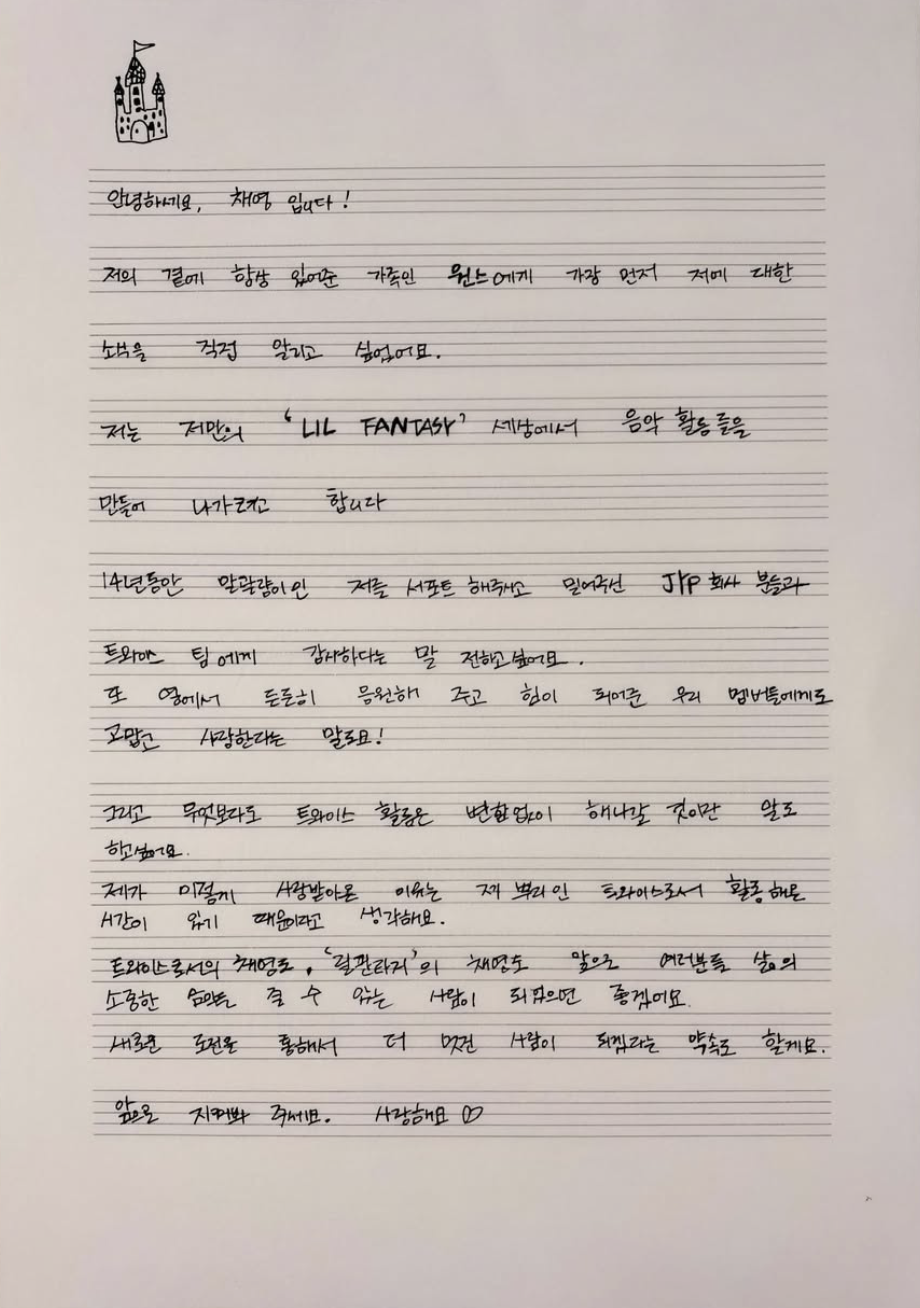 안녕하세요, 채영 입니다!
저의 곁에 항상 있어준 가족인 원스에게 가장 먼저 저에 대한
소식을 직접 알리고 싶었어요.
저는 저만의 ‘LIL FANTASY’ 세상에서 음악 활동들을
만들어 나가려고 합니다
14년동안 말괄량이인 저를 서포트 해주시고 밀어주신 JYP 회사 분들과
트와이스 팀에게 감사하다는 말 전하고싶어요.
또 옆에서 든든히 응원해 주고 힘이 되어준 우리 멤버들에게도
고맙고 사랑한다는 말로요!
그리고 무엇보다도 트와이스 활동은 변함없이 해나갈 것이란 말도
하고싶어요.
제가 이렇게 사랑받아온 이유는 제 뿌리인 트와이스로서 활동해온
시간이 있기 때문이라고 생각해요.
트와이스로서의 채영도, ‘릴판타지’의 채영도 앞으로 여러분들 삶의
소중한 음악을 줄 수 있는 사람이 되었으면 좋겠어요.
새로운 도전을 통해서 더 멋진 사람이 되겠다는 약속도 할게요.
앞으로 지켜봐 주세요. 사랑해요 ♡